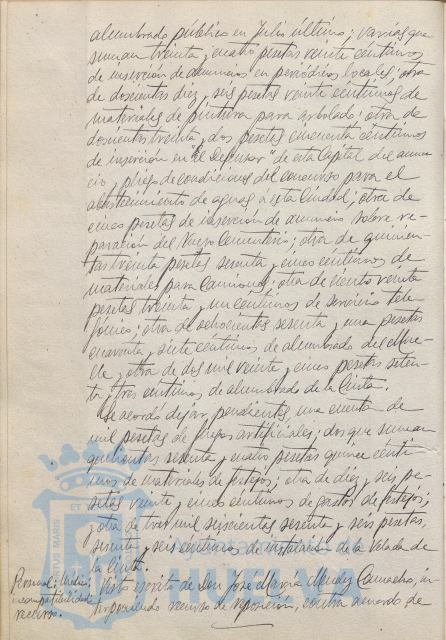 alumbrado público en Julio último; varias que
suman treinta y cuatro pesetas veinte céntimos
de inserción de anuncios en periódicos locales; otra
de doscientas diez y seis pesetas veinte céntimos de
materiales de pintura para arbolado; otra de
doscientas treinta y dos pesetas cincuenta céntimos
de inserción en "El Defensor" de esta Capital del anun-
cio y pliego de condiciones del concurso para el
abastecimiento de aguas a esta Ciudad; otra de
cinco pesetas de inserción de anuncio sobre re-
paración del Viejo Cementerio; otra de quinien-
tas treinta pesetas sesenta y cinco céntimos de
materiales para camiones; otra de ciento veinte
pesetas treinta y un céntimos de servicio tele-
fónico; otra de ochocientas sesenta y una pesetas
cuarenta y siete céntimos de alumbrado del mue-
lle y otra de dos mil veinte y cinco pesetas seten-
ta y tres céntimos de alumbrado de la Cinta.
Se acordó dejar pendientes una cuenta de
mil pesetas de fuegos artificiales; dos que suman
quinientas sesenta y cuatro pesetas quince cénti-
mos de materiales de festejos; otra de diez y seis pe-
setas veinte y cinco céntimos de gastos de festejos;
y otra de tres mil seiscientas sesenta y seis pesetas,
sesenta y seis céntimos de instalación de la Velada de
la Cinta.
Personal:
incompatibilidad:
recurso.
Visto escrito de Don José María Méndez Camacho, in-
terponiendo recurso de reposición, contra acuerdo de
Ayuntamiento de
HUELVA